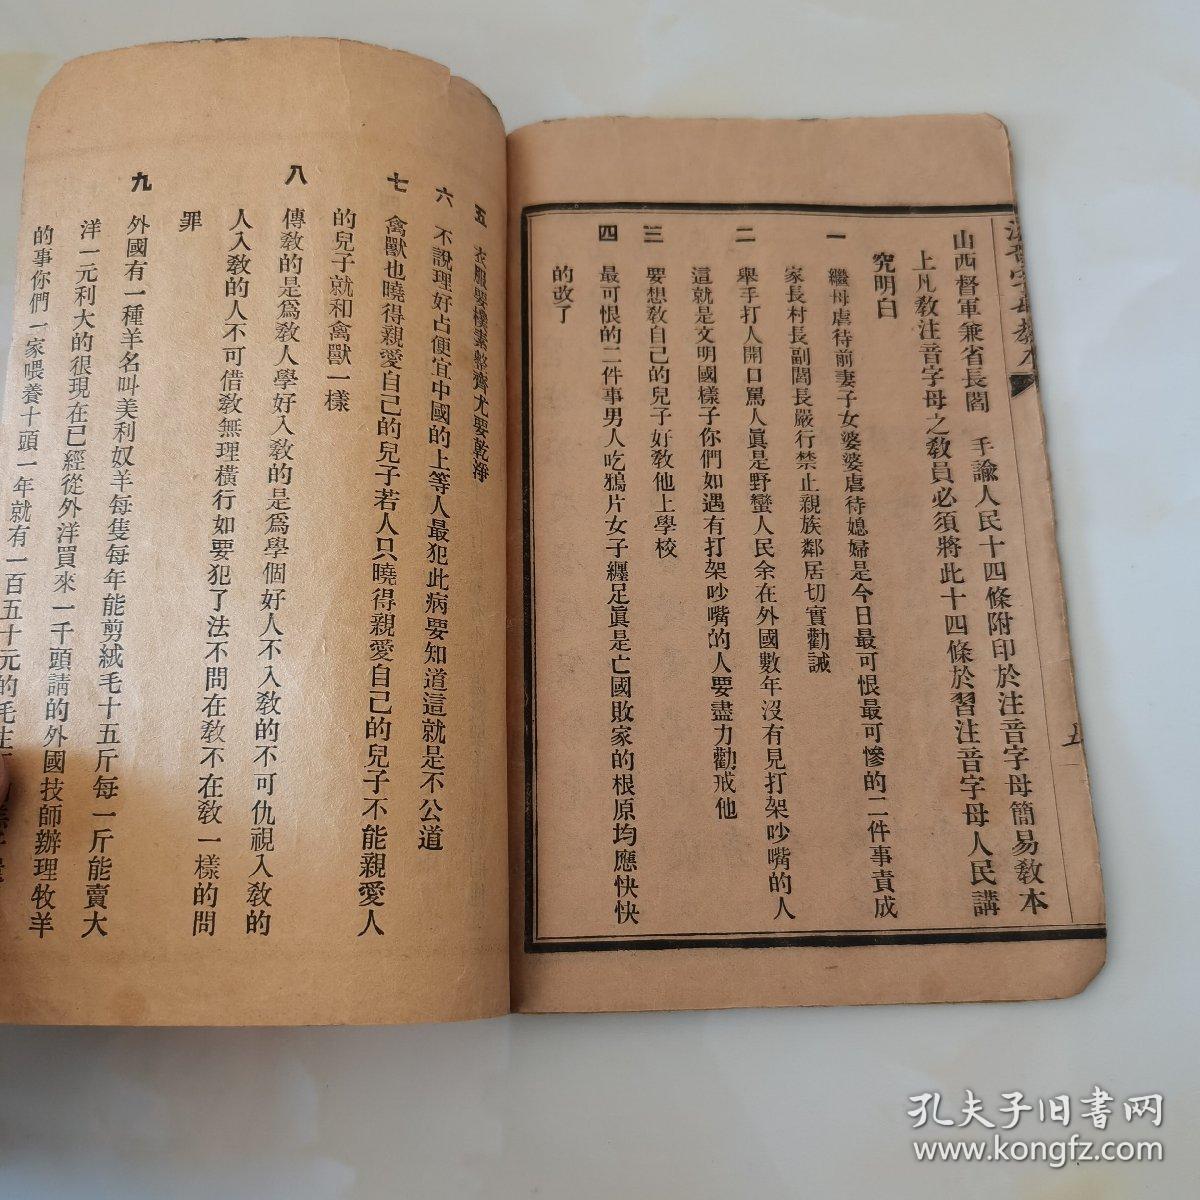 山西督軍兼省長閻　手諭人民十四條附印於注音字母簡易教本
上凡教注音字母之教員必須將此十四條於習注音字母人民講
究明白
一　繼母虐待前妻子女婆婆虐待媳婦是今日最可恨最可慘的二件事責成
家長村長副閭長嚴行禁止親族鄰居切實勸誡
二　舉手打人開口罵人眞是野蠻人民余在外國數年沒有見打架吵嘴的人
這就是文明國樣子你們如遇有打架吵嘴的人要盡力勸戒他
三　要想教自己的兒子好教他上學校
四　最可恨的二件事男人吃鴉片女子纏足眞是亡國敗家的根原均應快快
的改了
五　衣服要樸素整齊尤要乾淨
六　不說理好占便宜中國的上等人最犯此病要知道這就是不公道
七　禽獸也曉得親愛自己的兒子若人只曉得親愛自己的兒子不能親愛人
的兒子就和禽獸一樣
八　傳教的是爲教人學好入教的是爲學個好人不入教的不可仇視入教的
人入教的人不可借教無理橫行如要犯了法不問在教不在教一樣的問
罪
九　外國有一種羊名叫美利奴羊每隻每年能剪絨毛十五斤每一斤能賣大
洋一元利大的很現在已經從外洋買來一千頭請的外國技師辦理牧羊
的事你們一家喂養十頭一年就有一百五十元的毛
孔夫子旧书网
www.kongfz.com